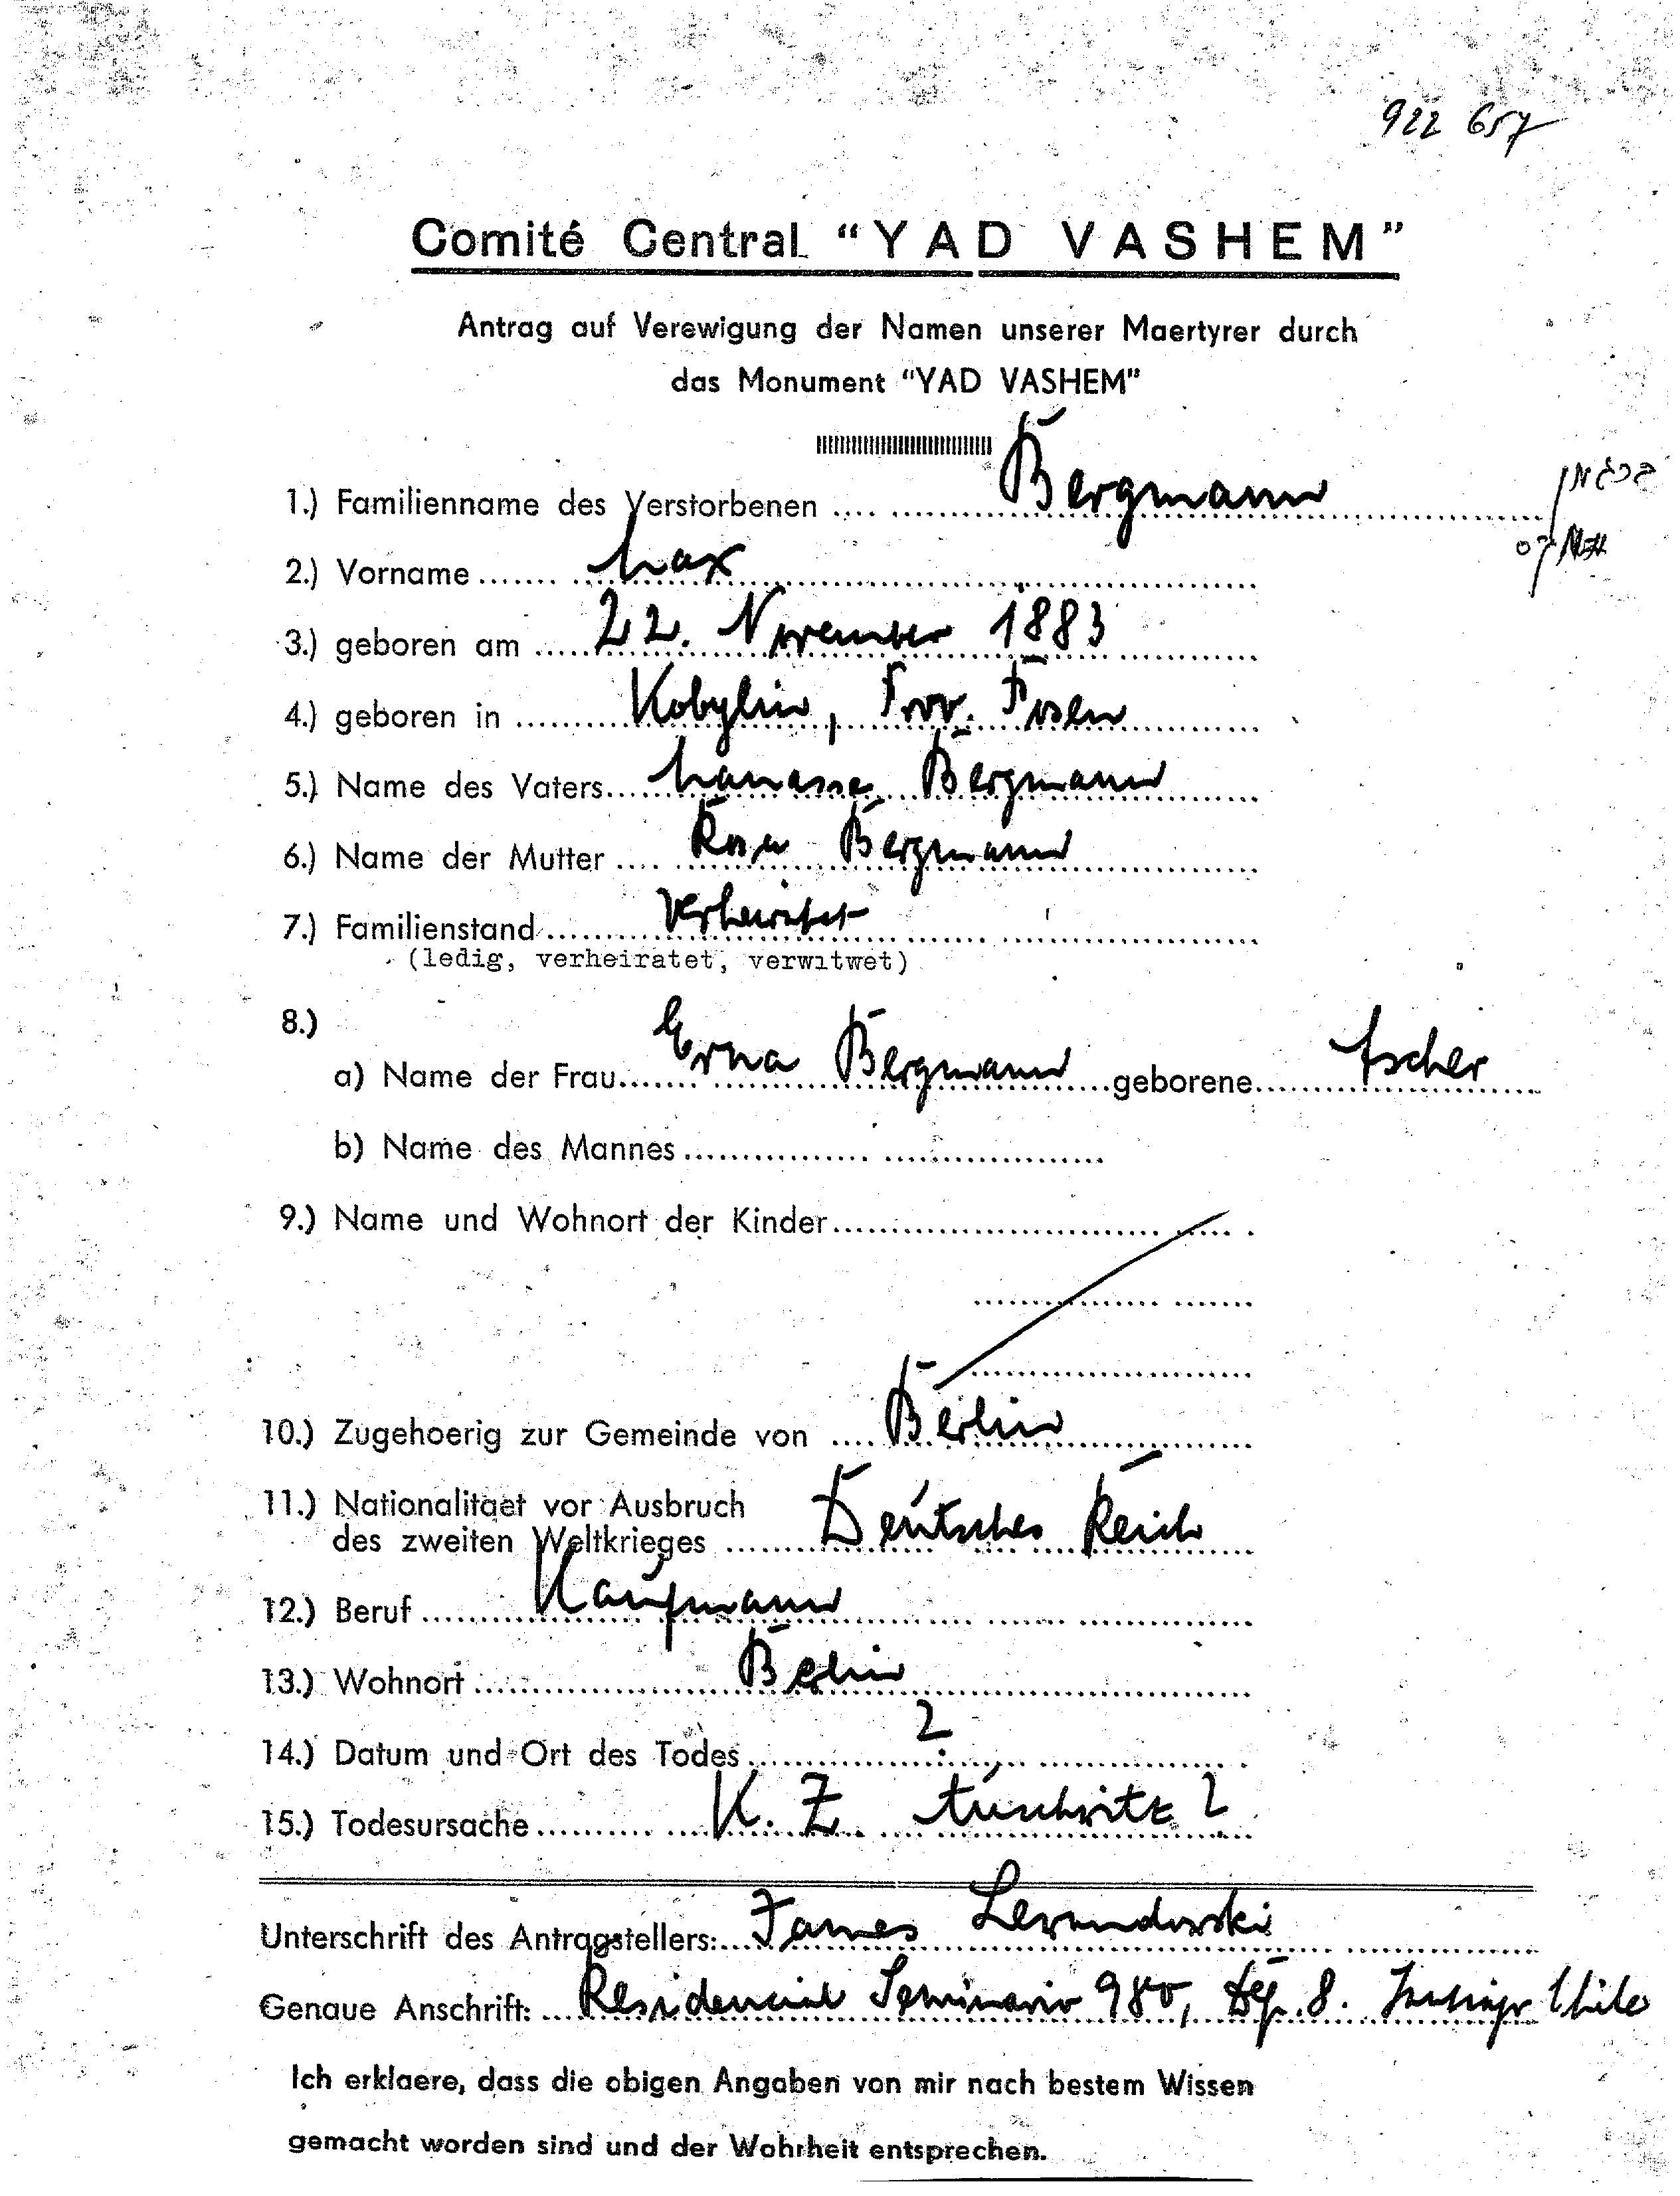 922 657
Comité Central "YAD VASHEM"
Antrag auf Verewigung der Namen unserer Maertyrer durch
das Monument "YAD VASHEM"
1.) Familienname des Verstorbenen .... Bergmann ברגמן
2.) Vorname ....... Max
3.) geboren am ..... 22. November 1883
4.) geboren in ......... Kobylin, Prov. Posen
5.) Name des Vaters.... Manasse Bergmann
6.) Name der Mutter .... Rosa Bergmann
7.) Familienstand.......... Verheiratet
(ledig, verheiratet, verwitwet)
8.)
a) Name der Frau....... Erna Bergmann ....geborene.... Ascher
b) Name des Mannes................
9.) Name und Wohnort der Kinder................
10.) Zugehoerig zur Gemeinde von .... Berlin
11.) Nationalitaet vor Ausbruch
des zweiten Weltkrieges ........ Deutsches Reich
12.) Beruf ......... Kaufmann
13.) Wohnort ................ Berlin
14.) Datum und Ort des Todes............ ?
15.) Todesursache .......... K. Z. Auschwitz ?
Unterschrift des Antragstellers:.... James Lewandowski
Genaue Anschrift: ... Residencial Seminario 980, Dep. 8. Santiago Chile
Ich erklaere, dass die obigen Angaben von mir nach bestem Wissen
gemacht worden sind und der Wahrheit entsprechen.